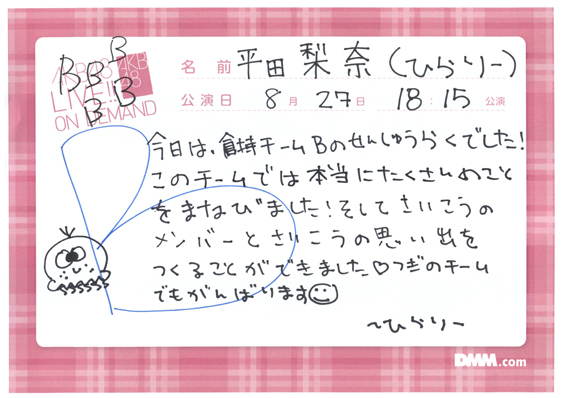 AKB48 AKB48
LIVE!!
ON DEMAND
B B B B B
名前 平田梨奈(ひらりー)
公演日 8月27日 18:15公演
今日は、倉持チームBのせんしゅうらくでした!
このチームでは本当にたくさんのこと
をまなびました!そしてさいこうの
メンバーとさいこうの思い出を
つくることができました♡つぎのチーム
でもがんばります☺
~ひらりー
DMM.com